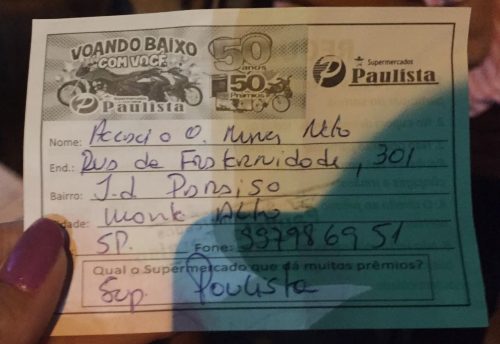 VOANDO BAIXO
COM VOCÊ
Supermercados
Paulista
50
anos
50
Prêmios
Supermercados
Paulista
Nome: Acacio O. Nunes Neto
End.: Rua da Fraternidade, 301
Bairro: Jd Paraiso
Cidade: Monte Alto
SP. Fone: 997986951
Qual o Supermercado que dá muitos prêmios?
Sup. Paulista